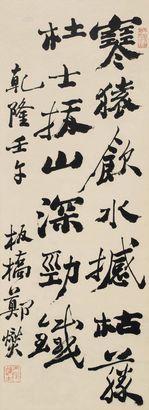 寒猿飲水撼枯藤
壯士拔山深勁鐵
乾隆壬午 板橋鄭燮